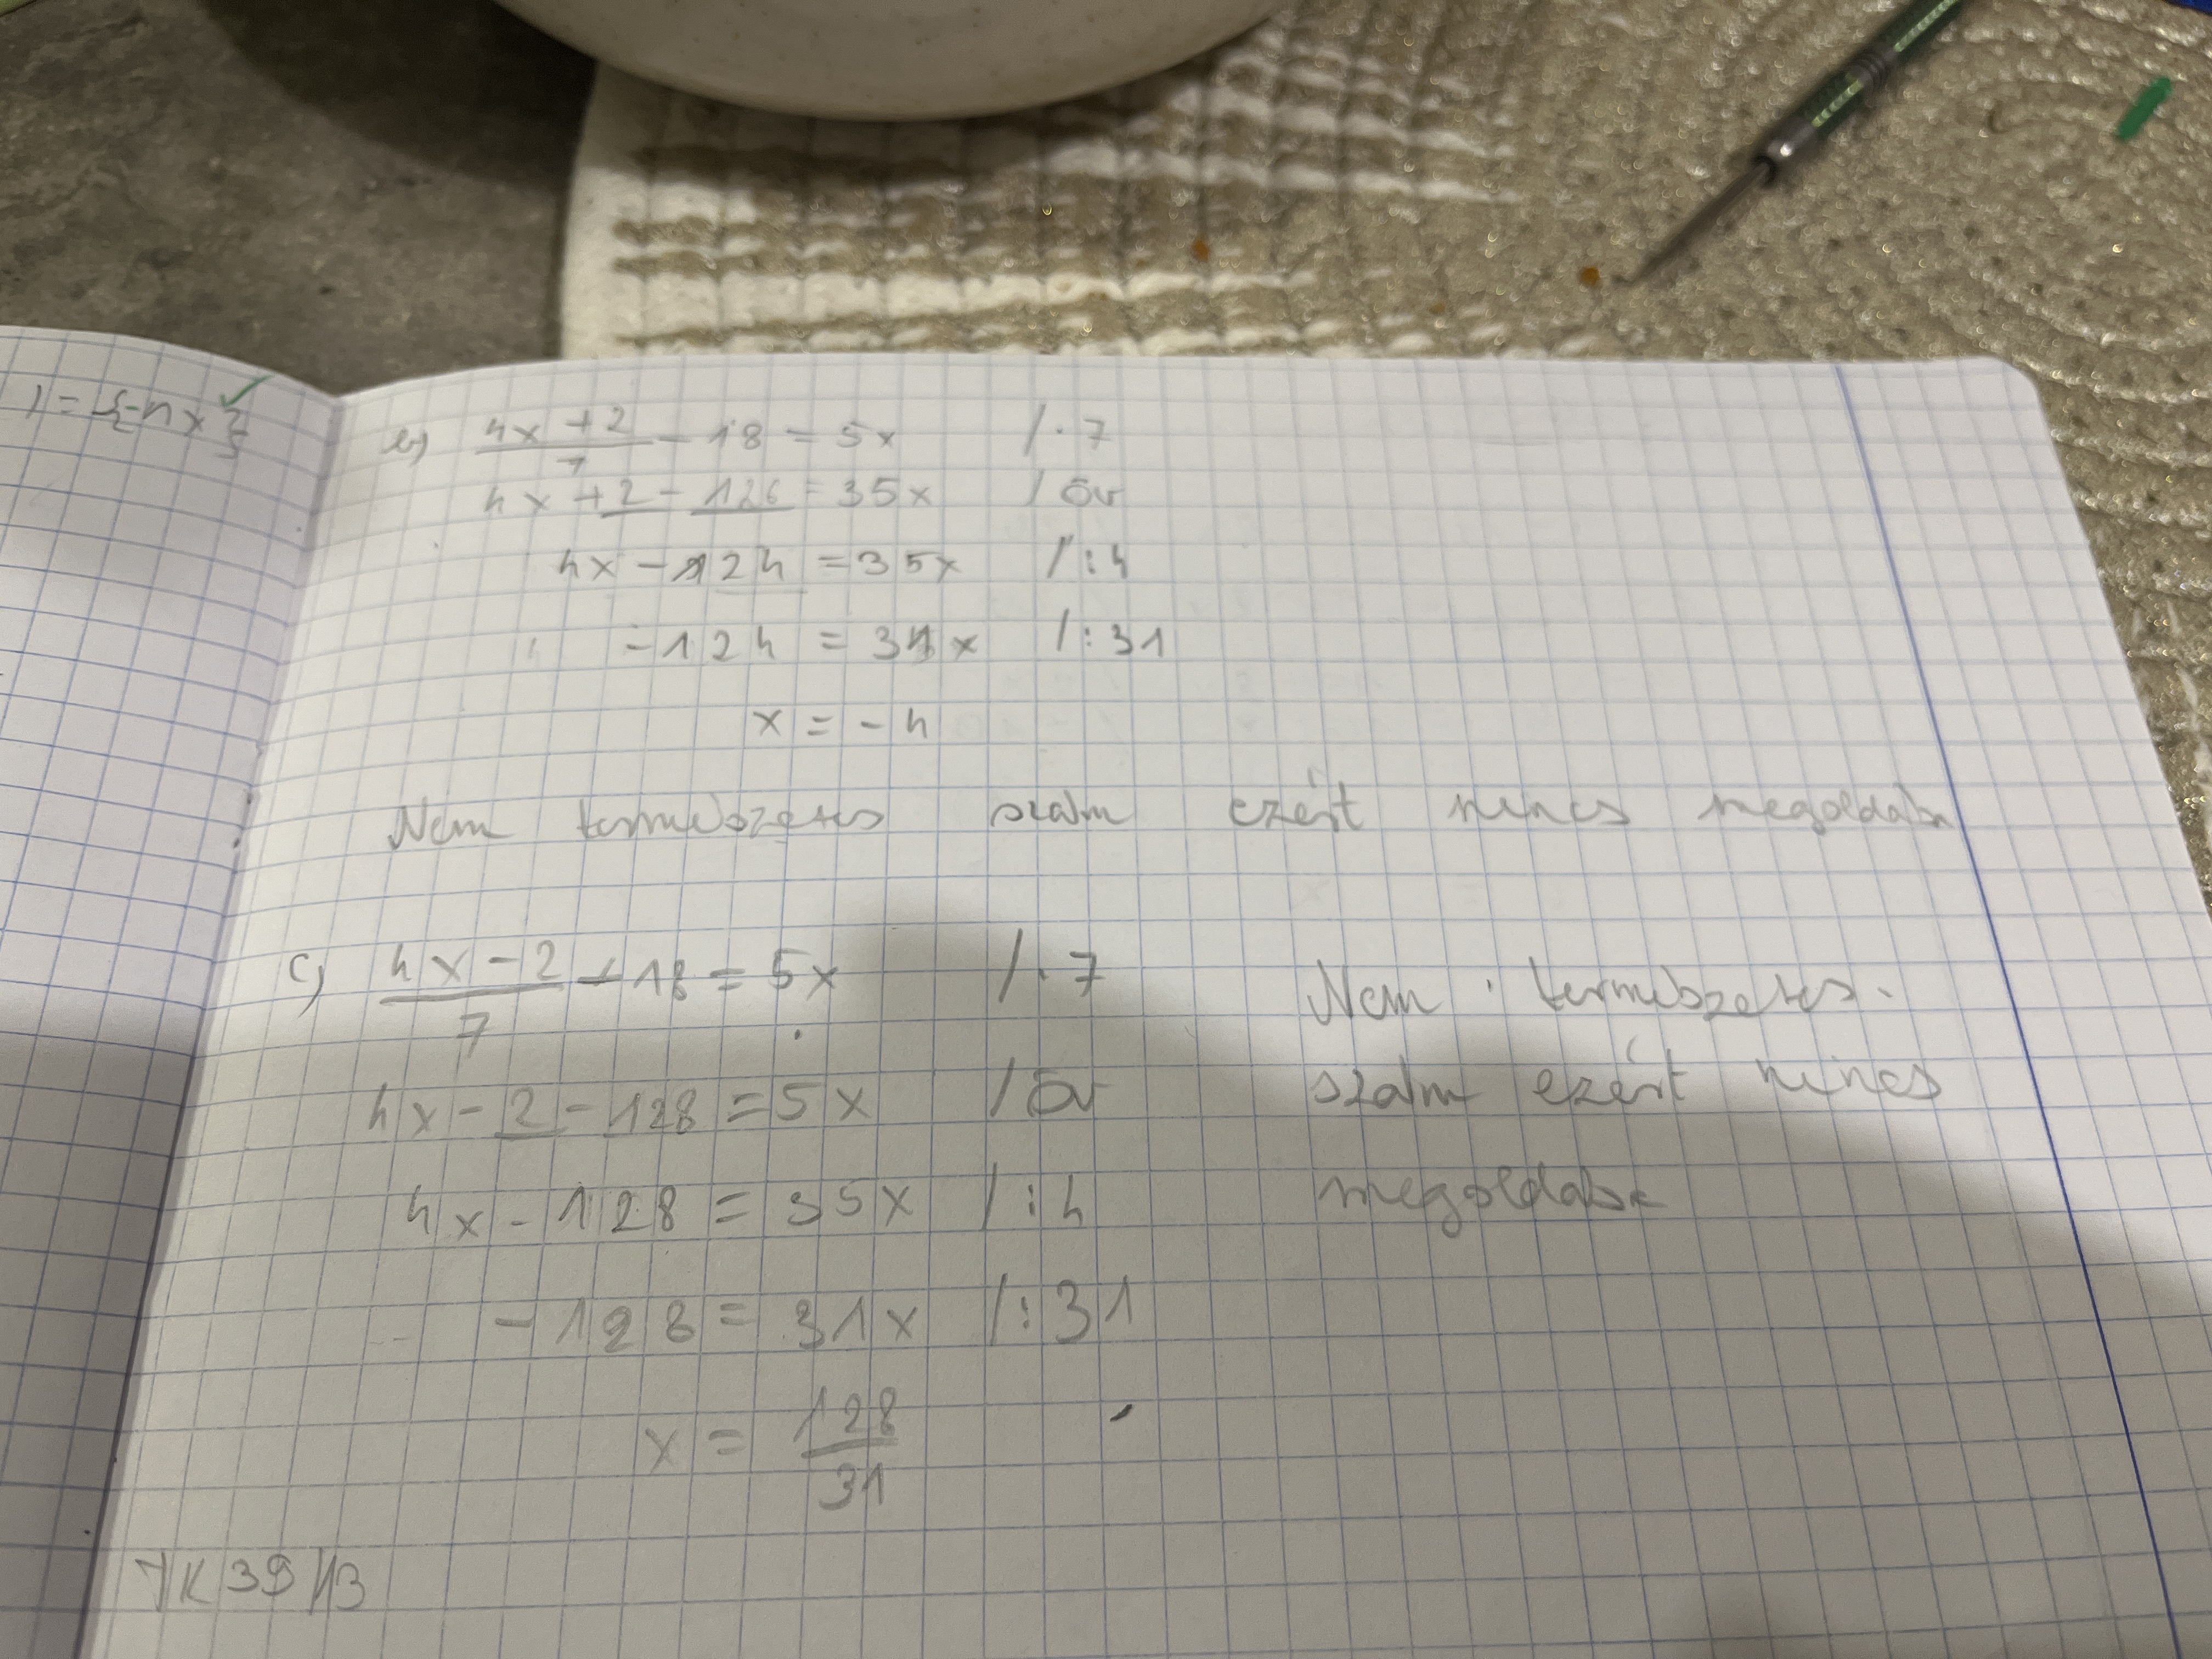 b) (4x + 2)/7 - 18 = 5x /·7
4x + 2 - 126 = 35x /öv
4x - 124 = 35x /:4
-124 = 31x /:31
x = -4
Nem természetes szám ezért nincs megoldás
c) (4x - 2)/7 - 18 = 5x /·7
4x - 2 - 128 = 5x /öv
4x - 128 = 35x /:4
-128 = 31x /:31
x = 128/31
Nem természetes
szám ezért nincs
megoldása
TK 39/13